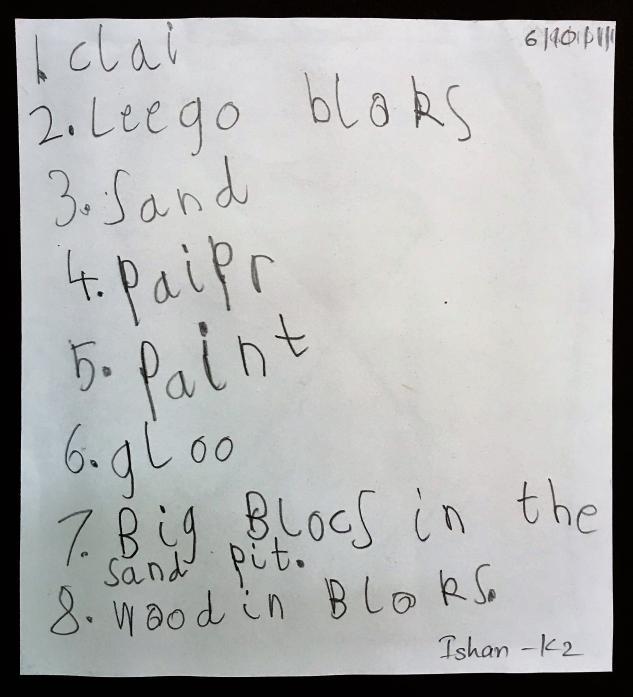 1. clai
2. Leego bloks
3. Sand
4. paipr
5. paint
6. gLoo
7. Big Blocs in the
sand pit.
8. wood in Bloks.
Ishan - K2